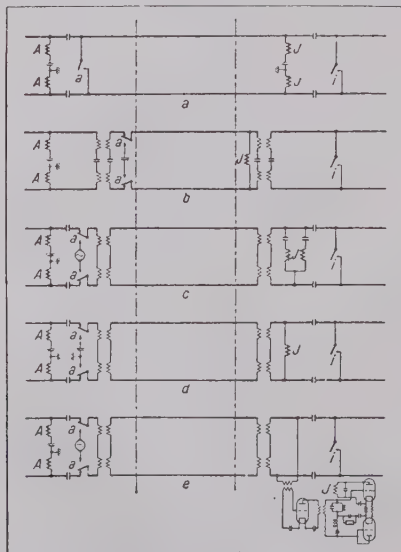 A
A
a
J
J
i
a
A
A
a
a
J
i
b
A
A
a
a
J
i
c
A
A
a
a
J
i
d
A
A
a
a
i
e
J